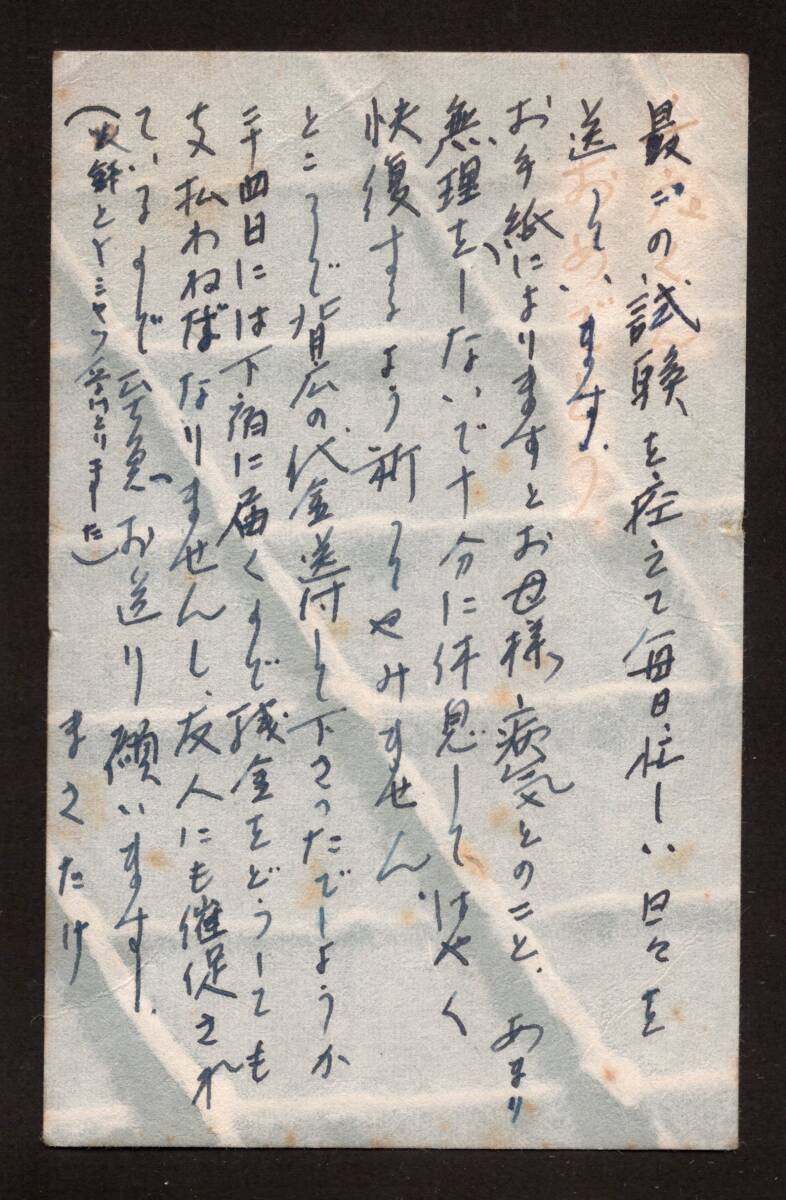 最后の試験を控えて毎日忙しい日々を
送っています。
お手紙によりますとお母様、病気とのこと、あまり
無理をしないで十分に休息してはやく
快復するよう祈ってやみません。
ところで背広の代金送付して下さったでしょうか
二十四日には下宿に届くので残金をどうしても
支払わねばなりませんし、友人にも催促され
ているので至急お送り願います。
まさたけ
とYシャツ受けとりました)
おめでとう